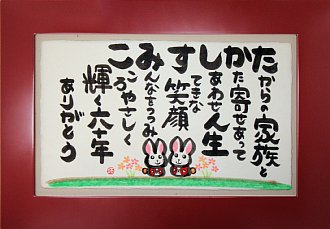 たからの家族と
かた寄せあって
しあわせ人生
すてきな笑顔
みんなをつつみ
こころやさしく
輝く六十年
ありがとう